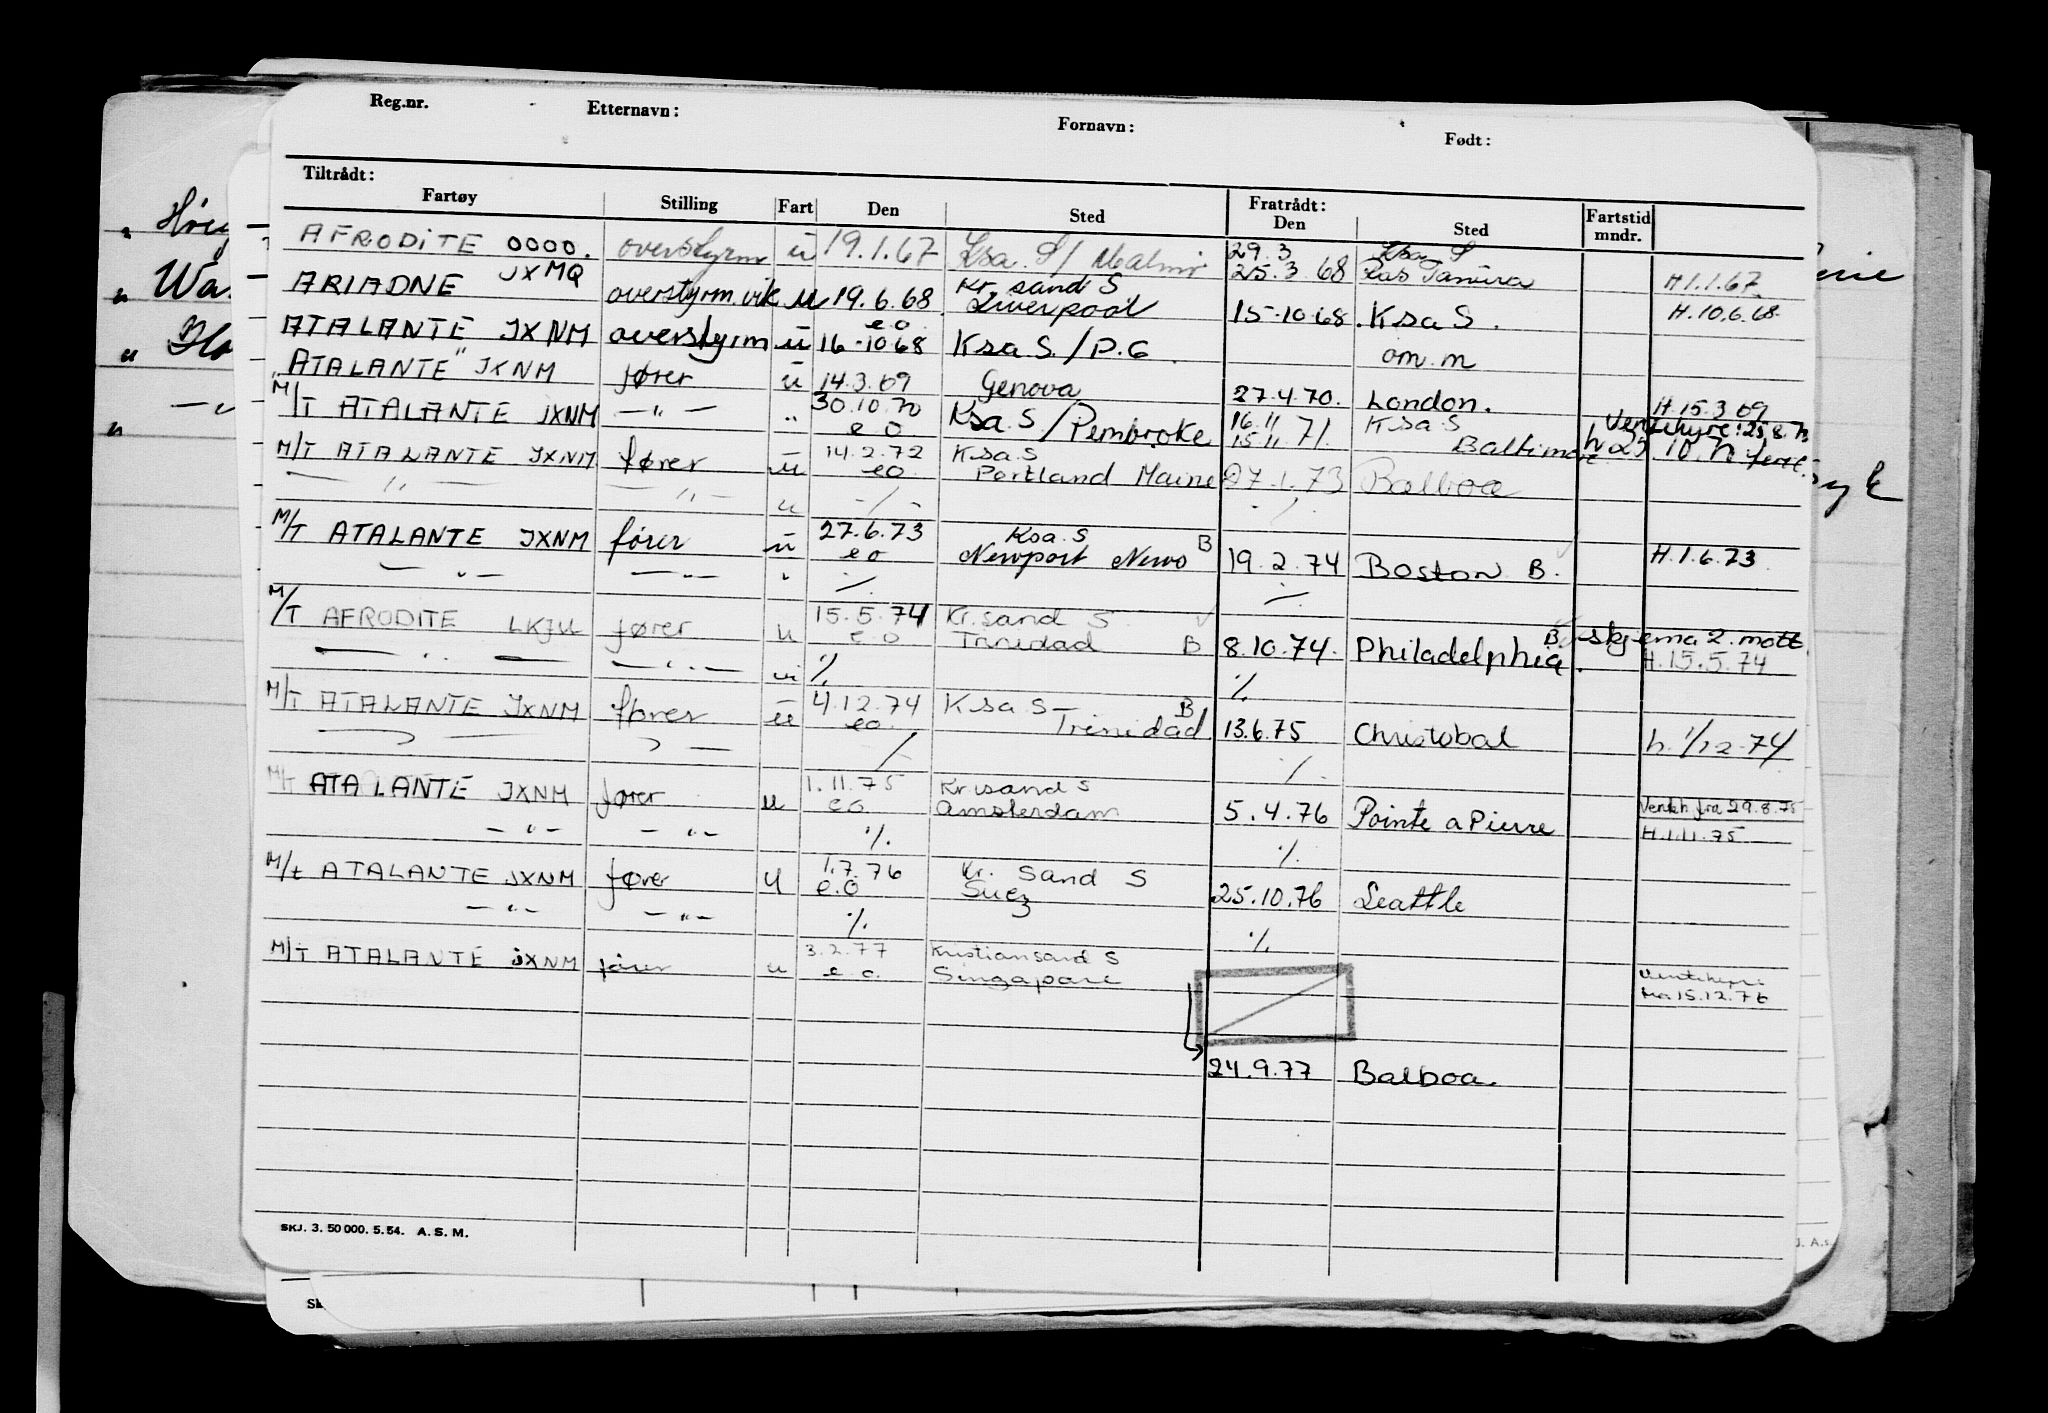 Reg.nr. Etternavn: Fornavn: Født:
Tiltrådt: Fratrådt:
Fartøy Stilling Fart Den Sted Den Sted Fartstid mndr.
AFRODITE OOOO. overstyrm u 19.1.67 Ksa. S/ Malmö 29.3 25.3.68 Ksa S Ras Tanura H 1.1.67
ARIADNE JXMQ overstyrm vik u 19.6.68 e.o. Kr. sand S Liverpool 15.10.68. Ksa S. H.10.6.68
ATALANTE JXNM overstyrm u 16-10.68 Ksa S. / P.G. om. m
"ATALANTE" JXNM fører u 14.3.69 Genova 27.4.70. London. H.15.3.69
M/T ATALANTE JXNM — " — " 30.10.70 e.o Ksa. S / Pembroke 16.11 15.11 71. Ksa S Baltimore
M/T ATALANTE JXNM fører u 14.2.72 eo Ksa S Portland Maine 27.1.73 Balboa
— " — — " — u -/- ./.
M/T ATALANTE JXNM fører u 27.6.73 eo Ksa. S Newport News B 19.2.74 Boston B. H.1.6.73
— " — — " — " ./. ./.
M/T AFRODITE LKJU fører u 15.5.74 e.o Kr.sand S Trinidad B 8.10.74. Philadelphia. B skjema 2. mott H.15.5.74
— " — — " — u ./. ./.
M/T ATALANTE JXNM fører u 4.12.74 eo. Ksa S — Trinidad B 13.6.75 Christobal h. 1/12-74
— " — " — ./. ./.
M/T ATALANTE JXNM fører u 1.11.75 eo. Kr.sand S Amsterdam 5.4.76 Pointe a Pierre Venteh fra 29.8.75 H.1.11.75
— " — — " — ./. ./.
M/t ATALANTE JXNM fører u 1.7.76 e.o Kr. Sand S Suez 25.10.76 Seattle
— " — — " — ./. ./.
M/T ATALANTE JXNM fører u 3.2.77 e.o. Kristiansand S Singapore fra 15.12.76
24.9.77 Balboa.
SKJ. 3. 50 000. 5.54. A. S. M.